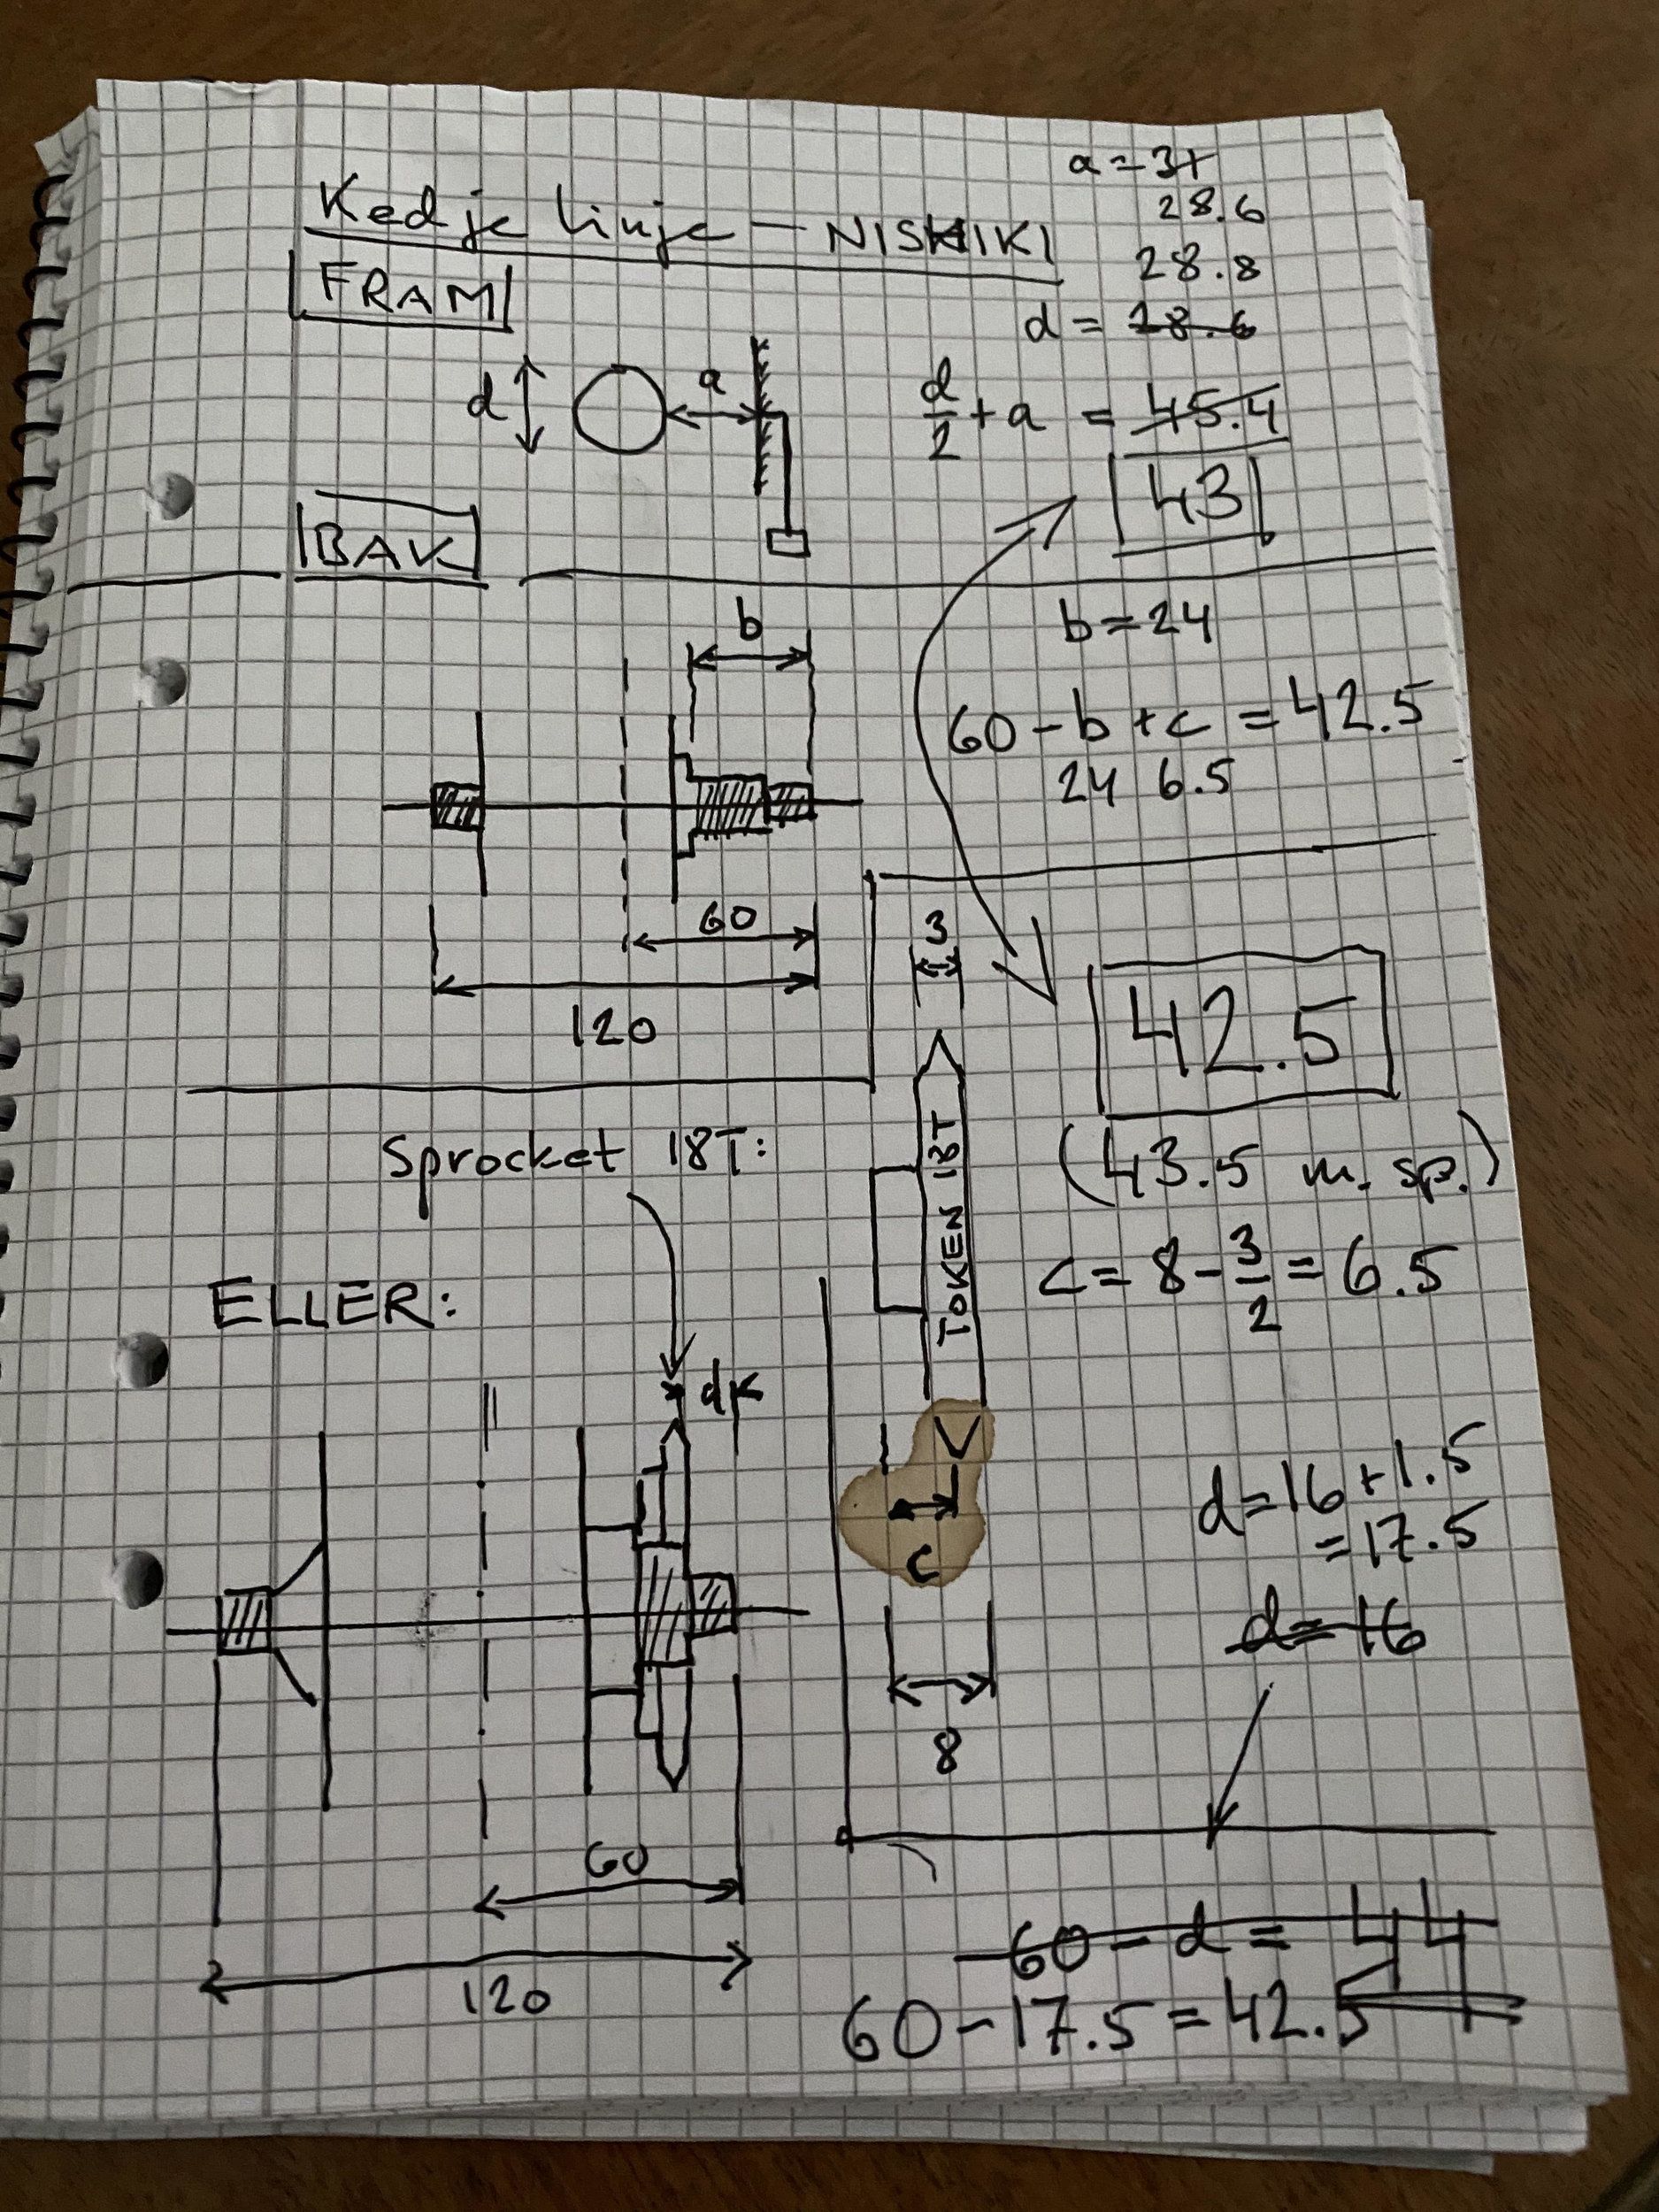 Kedje linje – NISHIKI
a = 31
28.6
28.8
d = 28.6
FRAM
d
a
d/2 + a = 45.4
43
BAK
b
b = 24
60 - b + c = 42.5
24 6.5
60
120
3
42.5
(43.5 m. sp.)
Sprocket 18T:
TOKEN 18T
c = 8 - 3/2 = 6.5
ELLER:
d
c
d = 16 + 1.5
= 17.5
d = 16
8
60
120
60 - d = 44
60 - 17.5 = 42.5